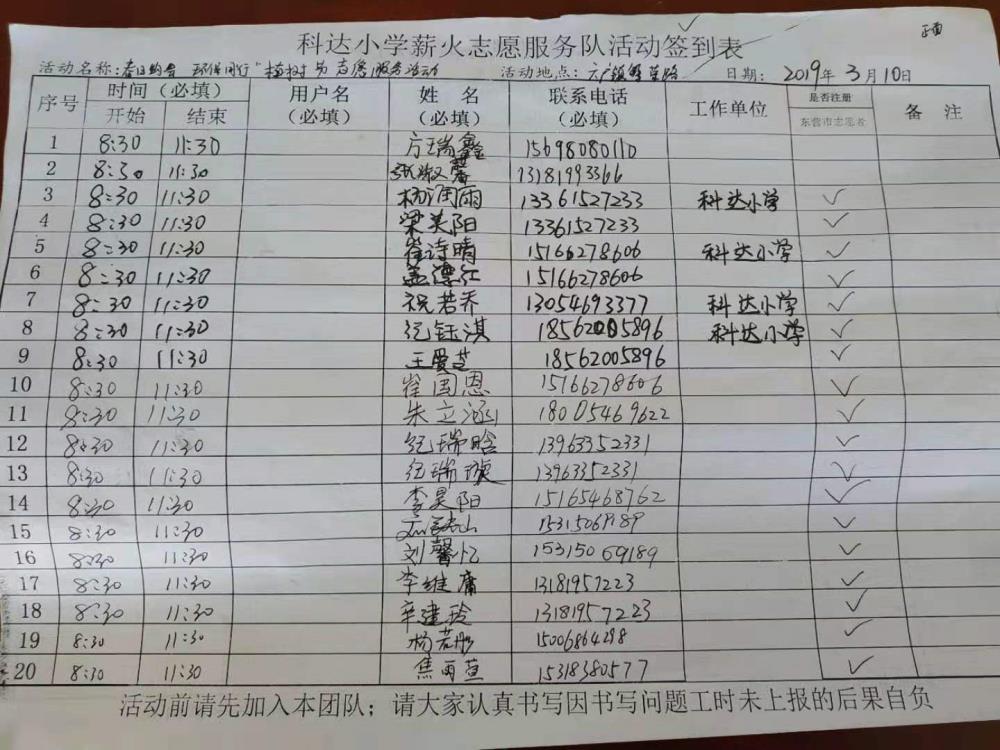 科达小学薪火志愿服务队活动签到表
活动名称:春日约会 环保同行"植树 志愿服务活动 活动地点: 日期: 2019年 3月10日
序号 时间(必填) 用户名(必填) 姓 名(必填) 联系电话(必填) 工作单位 是否注册 东营市志愿者 备 注
开始 结束
1 8:30 11:30 方瑞鑫 15698080110
2 8:30 11:30 张淑馨 13181993366
3 8:30 11:30 杨润雨 13361527233 科达小学 ✓
4 8:30 11:30 梁美阳 13361527233 ✓
5 8:30 11:30 崔诗晴 15166278606 科达小学 ✓
6 8:30 11:30 孟德红 15166278606 ✓
7 8:30 11:30 祝若乔 13054693377 科达小学 ✓
8 8:30 11:30 纪钰淇 18562005896 科达小学 ✓
9 8:30 11:30 王爱芝 18562005896 ✓
10 8:30 11:30 崔国恩 15166278606 ✓
11 8:30 11:30 朱立涵 18005469622 ✓
12 8:30 11:30 纪瑞晗 13963352331 ✓
13 8:30 11:30 纪瑞璇 13963352331 ✓
14 8:30 11:30 李昊阳 15165468762 ✓
15 8:30 11:30 15315069189 ✓
16 8:30 11:30 刘馨忆 15315069189 ✓
17 8:30 11:30 李维庸 13181957223 ✓
18 8:30 11:30 辛建玲 13181957223 ✓
19 8:30 11:30 杨若彤 15006864298 ✓
20 8:30 11:30 焦雨萱 15318380577 ✓
活动前请先加入本团队;请大家认真书写因书写问题工时未上报的后果自负